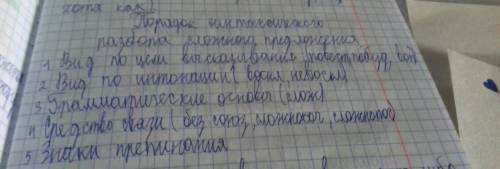 хотя как
Порядок синтаксического
разбора сложного предложения
1. Вид по цели высказывания (повест, побуд, воп)
2. Вид по интонации (воскл, невоскл)
3. Грамматические основы (слож)
4. Средство связи (без союз, сложносоч, сложнопод)
5 Знаки препинания